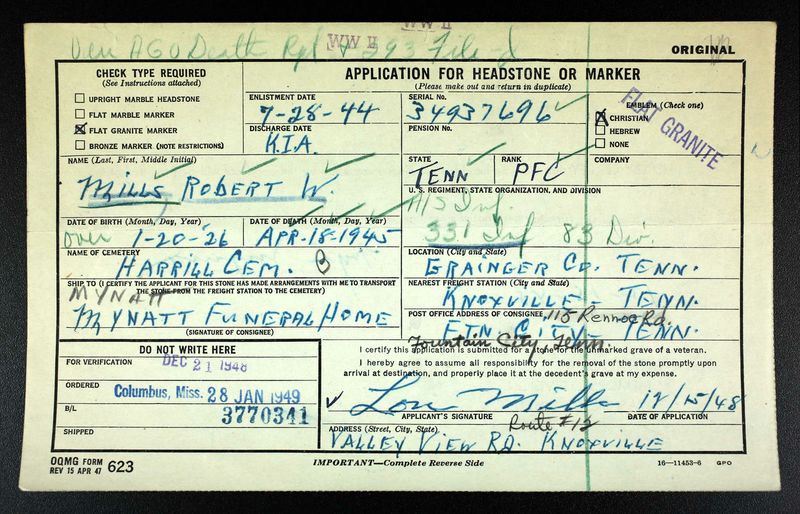 WW II
Veri AGO Death Rpt & 293 File
WW II
ORIGINAL
CHECK TYPE REQUIRED
(See Instructions attached)
UPRIGHT MARBLE HEADSTONE
FLAT MARBLE MARKER
X FLAT GRANITE MARKER
BRONZE MARKER (NOTE RESTRICTIONS)
APPLICATION FOR HEADSTONE OR MARKER
(Please make out and return in duplicate)
ENLISTMENT DATE
7-28-44
DISCHARGE DATE
K.I.A.
SERIAL No.
34937696
PENSION No.
EMBLEM (Check one)
X CHRISTIAN
HEBREW
NONE
FLAT GRANITE
NAME (Last, First, Middle Initial)
MILLS ROBERT W.
STATE
TENN
RANK
PFC
COMPANY
U. S. REGIMENT, STATE ORGANIZATION, AND DIVISION
413 Inf.
331 Inf 83 Div.
DATE OF BIRTH (Month, Day, Year)
over 1-20-26
DATE OF DEATH (Month, Day, Year)
APR-18-1945
NAME OF CEMETERY
HARRILL CEM. B
LOCATION (City and State)
GRAINGER CO. TENN.
SHIP TO (I CERTIFY THE APPLICANT FOR THIS STONE HAS MADE ARRANGEMENTS WITH ME TO TRANSPORT
THE STONE FROM THE FREIGHT STATION TO THE CEMETERY)
MYNATT
MYNATT FUNERAL HOME
(SIGNATURE OF CONSIGNEE)
NEAREST FREIGHT STATION (City and State)
KNOXVILLE, TENN.
POST OFFICE ADDRESS OF CONSIGNEE
115 Rennoc Rd.
FTN. CITY TENN.
Fountain City, Tenn.
DO NOT WRITE HERE
FOR VERIFICATION
DEC 21 1948
ORDERED
Columbus, Miss. 28 JAN 1949
B/L
3770341
SHIPPED
I certify this application is submitted for a stone for the unmarked grave of a veteran.
I hereby agree to assume all responsibility for the removal of the stone promptly upon
arrival at destination, and properly place it at the decedent's grave at my expense.
Lou Mills 12/15/48
APPLICANT'S SIGNATURE
DATE OF APPLICATION
Route #12
ADDRESS (Street, City, State)
VALLEY VIEW RD. KNOXVILLE
OQMG FORM
REV 15 APR 47 623
IMPORTANT—Complete Reverse Side
16—11453-6 GPO